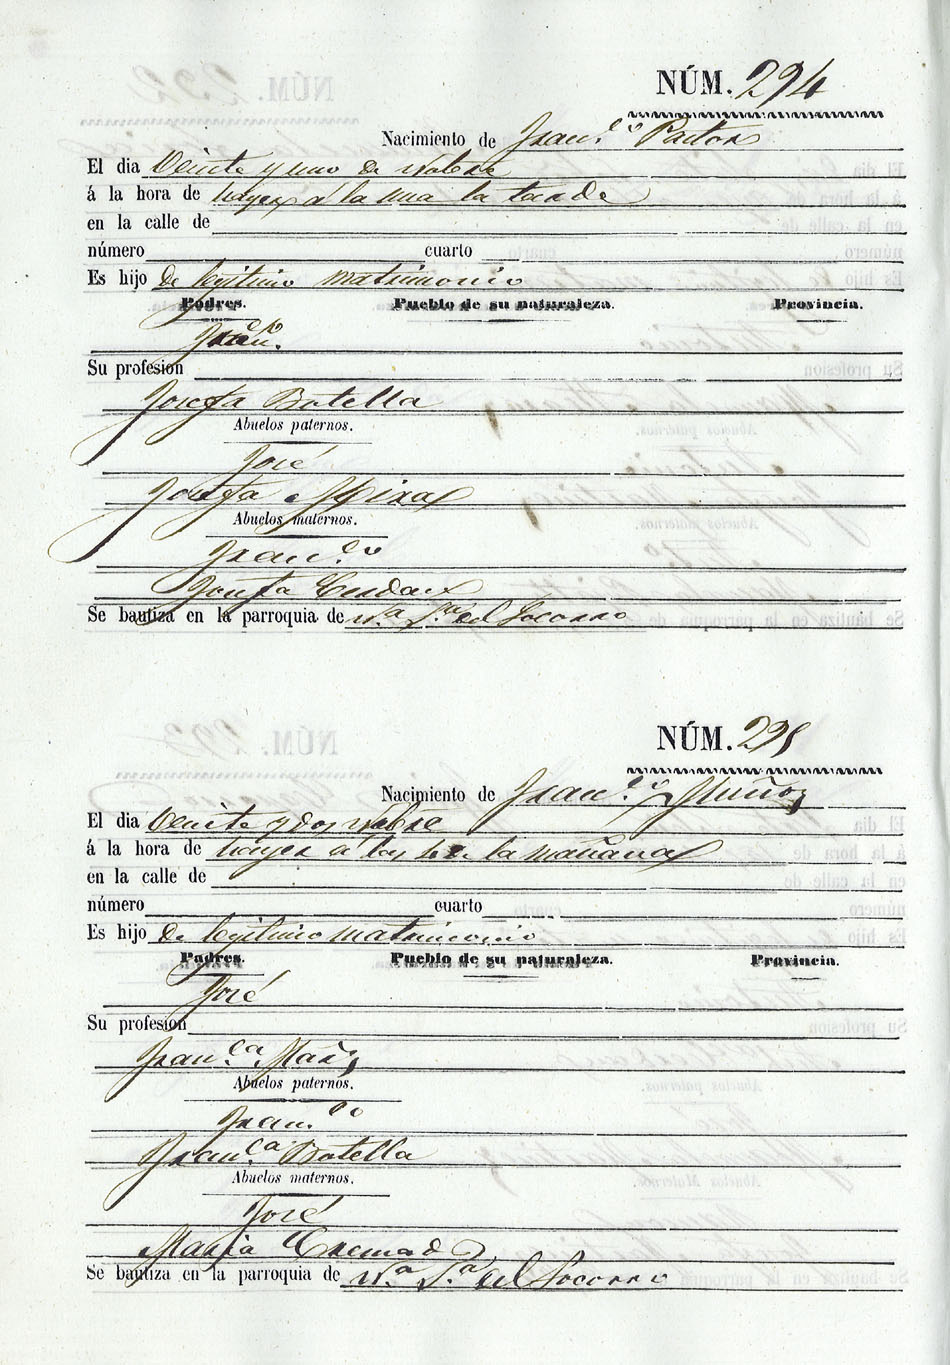 NÚM. 294
Nacimiento de Franco. Pastor
El dia Veinte y uno de
á la hora de a la una la tarde
en la calle de
número cuarto
Es hijo de legitimo matrimonio
Padres. Pueblo de su naturaleza. Provincia.
Franco.
Su profesion
Josefa Botella
Abuelos paternos.
José
Josefa Mira
Abuelos maternos.
Franco.
Josefa
Se bautiza en la parroquia de Na. Sra. del Socorro
NÚM. 295
Nacimiento de Franco. Muñoz
El dia Veinte y dos
á la hora de a las de la mañana
en la calle de
número cuarto
Es hijo de legitimo matrimonio
Padres. Pueblo de su naturaleza. Provincia.
José
Su profesion
Franca.
Abuelos paternos.
Franco.
Franca. Botella
Abuelos maternos.
José
Maria Cremades
Se bautiza en la parroquia de Na. Sa. del Socorro